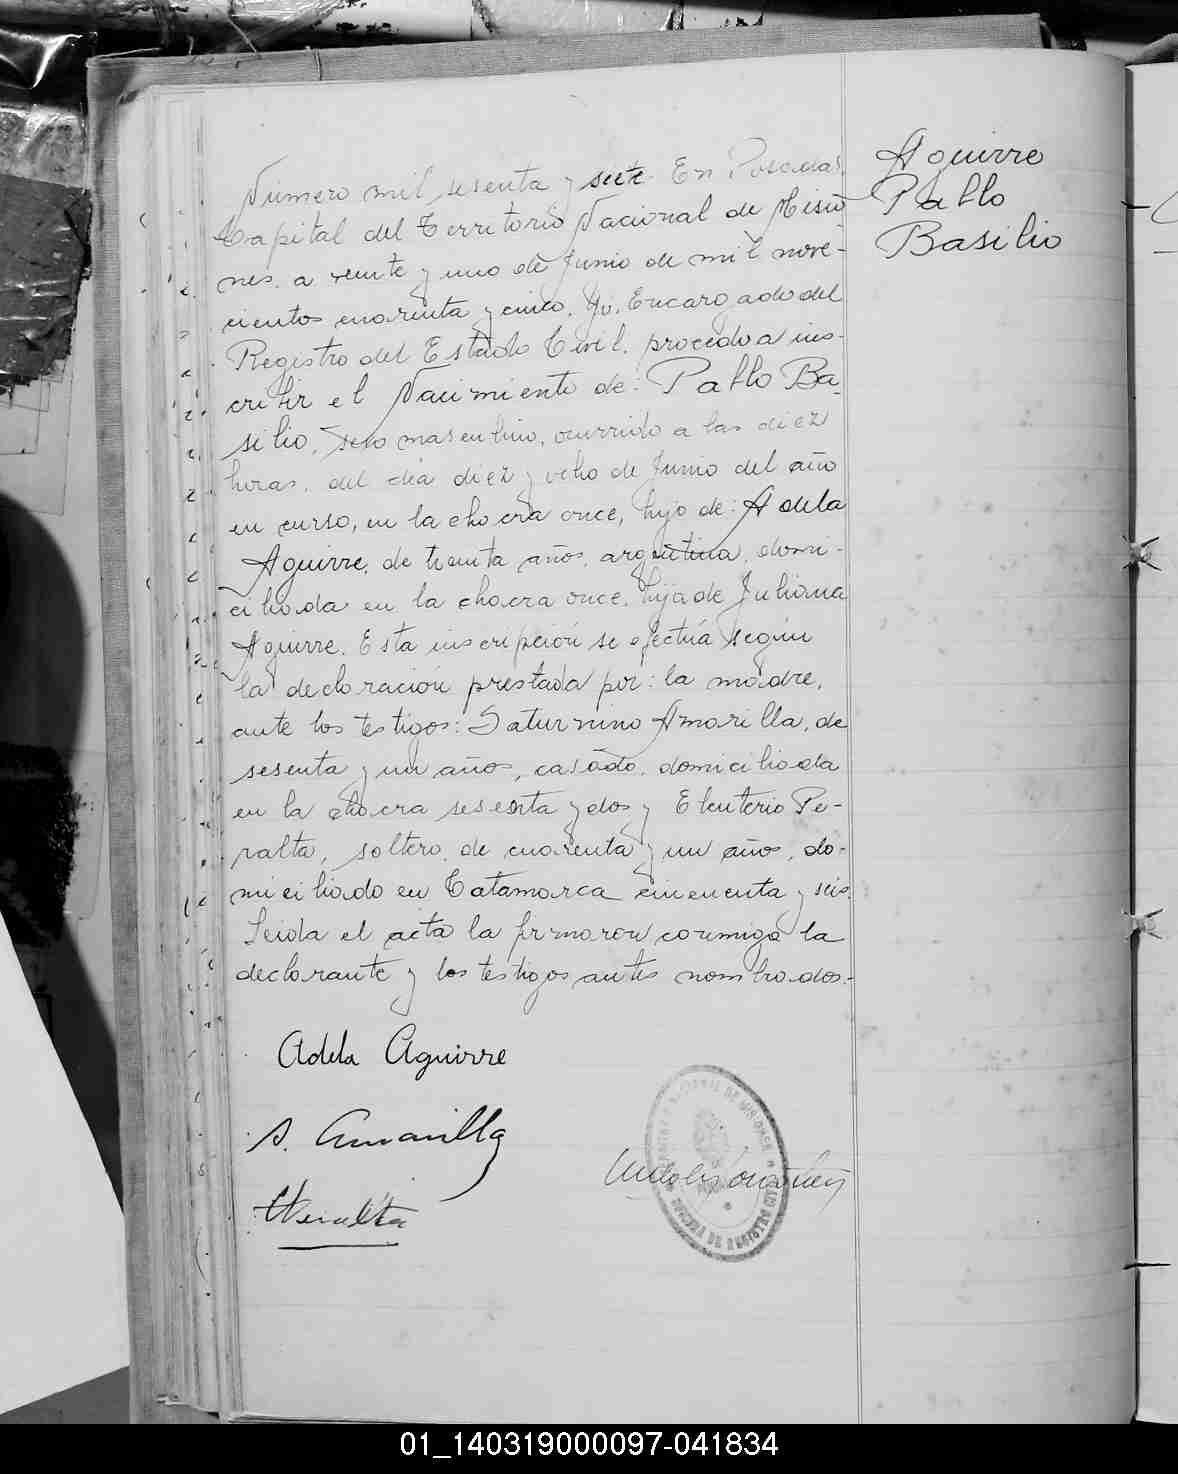 Número mil sesenta y siete. En Posadas,
Capital del Territorio Nacional de Misio
nes. a veinte y uno de Junio de mil nove-
cientos cuarenta y cinco. Yo, Encargado del
Registro del Estado Civil. procedo a ins-
cribir el Nacimiento de: Pablo Ba-
silio, sexo masculino, ocurrido a las diez
horas. del día diez y ocho de Junio del año
en curso, en la chacra once, hijo de: Adela
Aguirre, de treinta años, argentina, domi-
ciliada en la chacra once. hija de Juliana
Aguirre. Esta inscripción se efectúa según
la declaración prestada por: la madre,
ante los testigos: Saturnino Amarilla, de
sesenta y un años, casado. domiciliada
en la chacra sesenta y dos y Eleuterio Pe-
ralta, soltero, de cuarenta y un años, do-
miciliado en Catamarca cincuenta y seis.
Leida el acta la firmaron conmigo la
declarante y los testigos antes nombrados.-
Adela Aguirre
S. Amarilla
Peralta
Aguirre
Pablo
Basilio
01_140319000097-041834